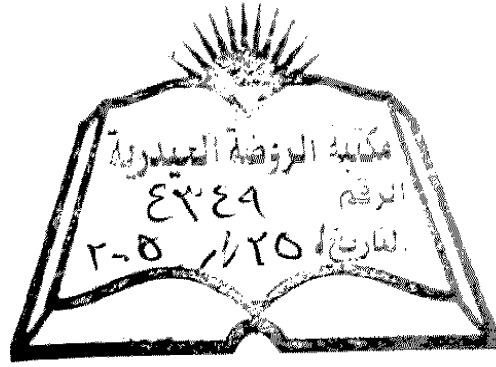 مكتبة الروضة الحيدرية
الرقم ٤٣٤٩
التاريخ ٢٥